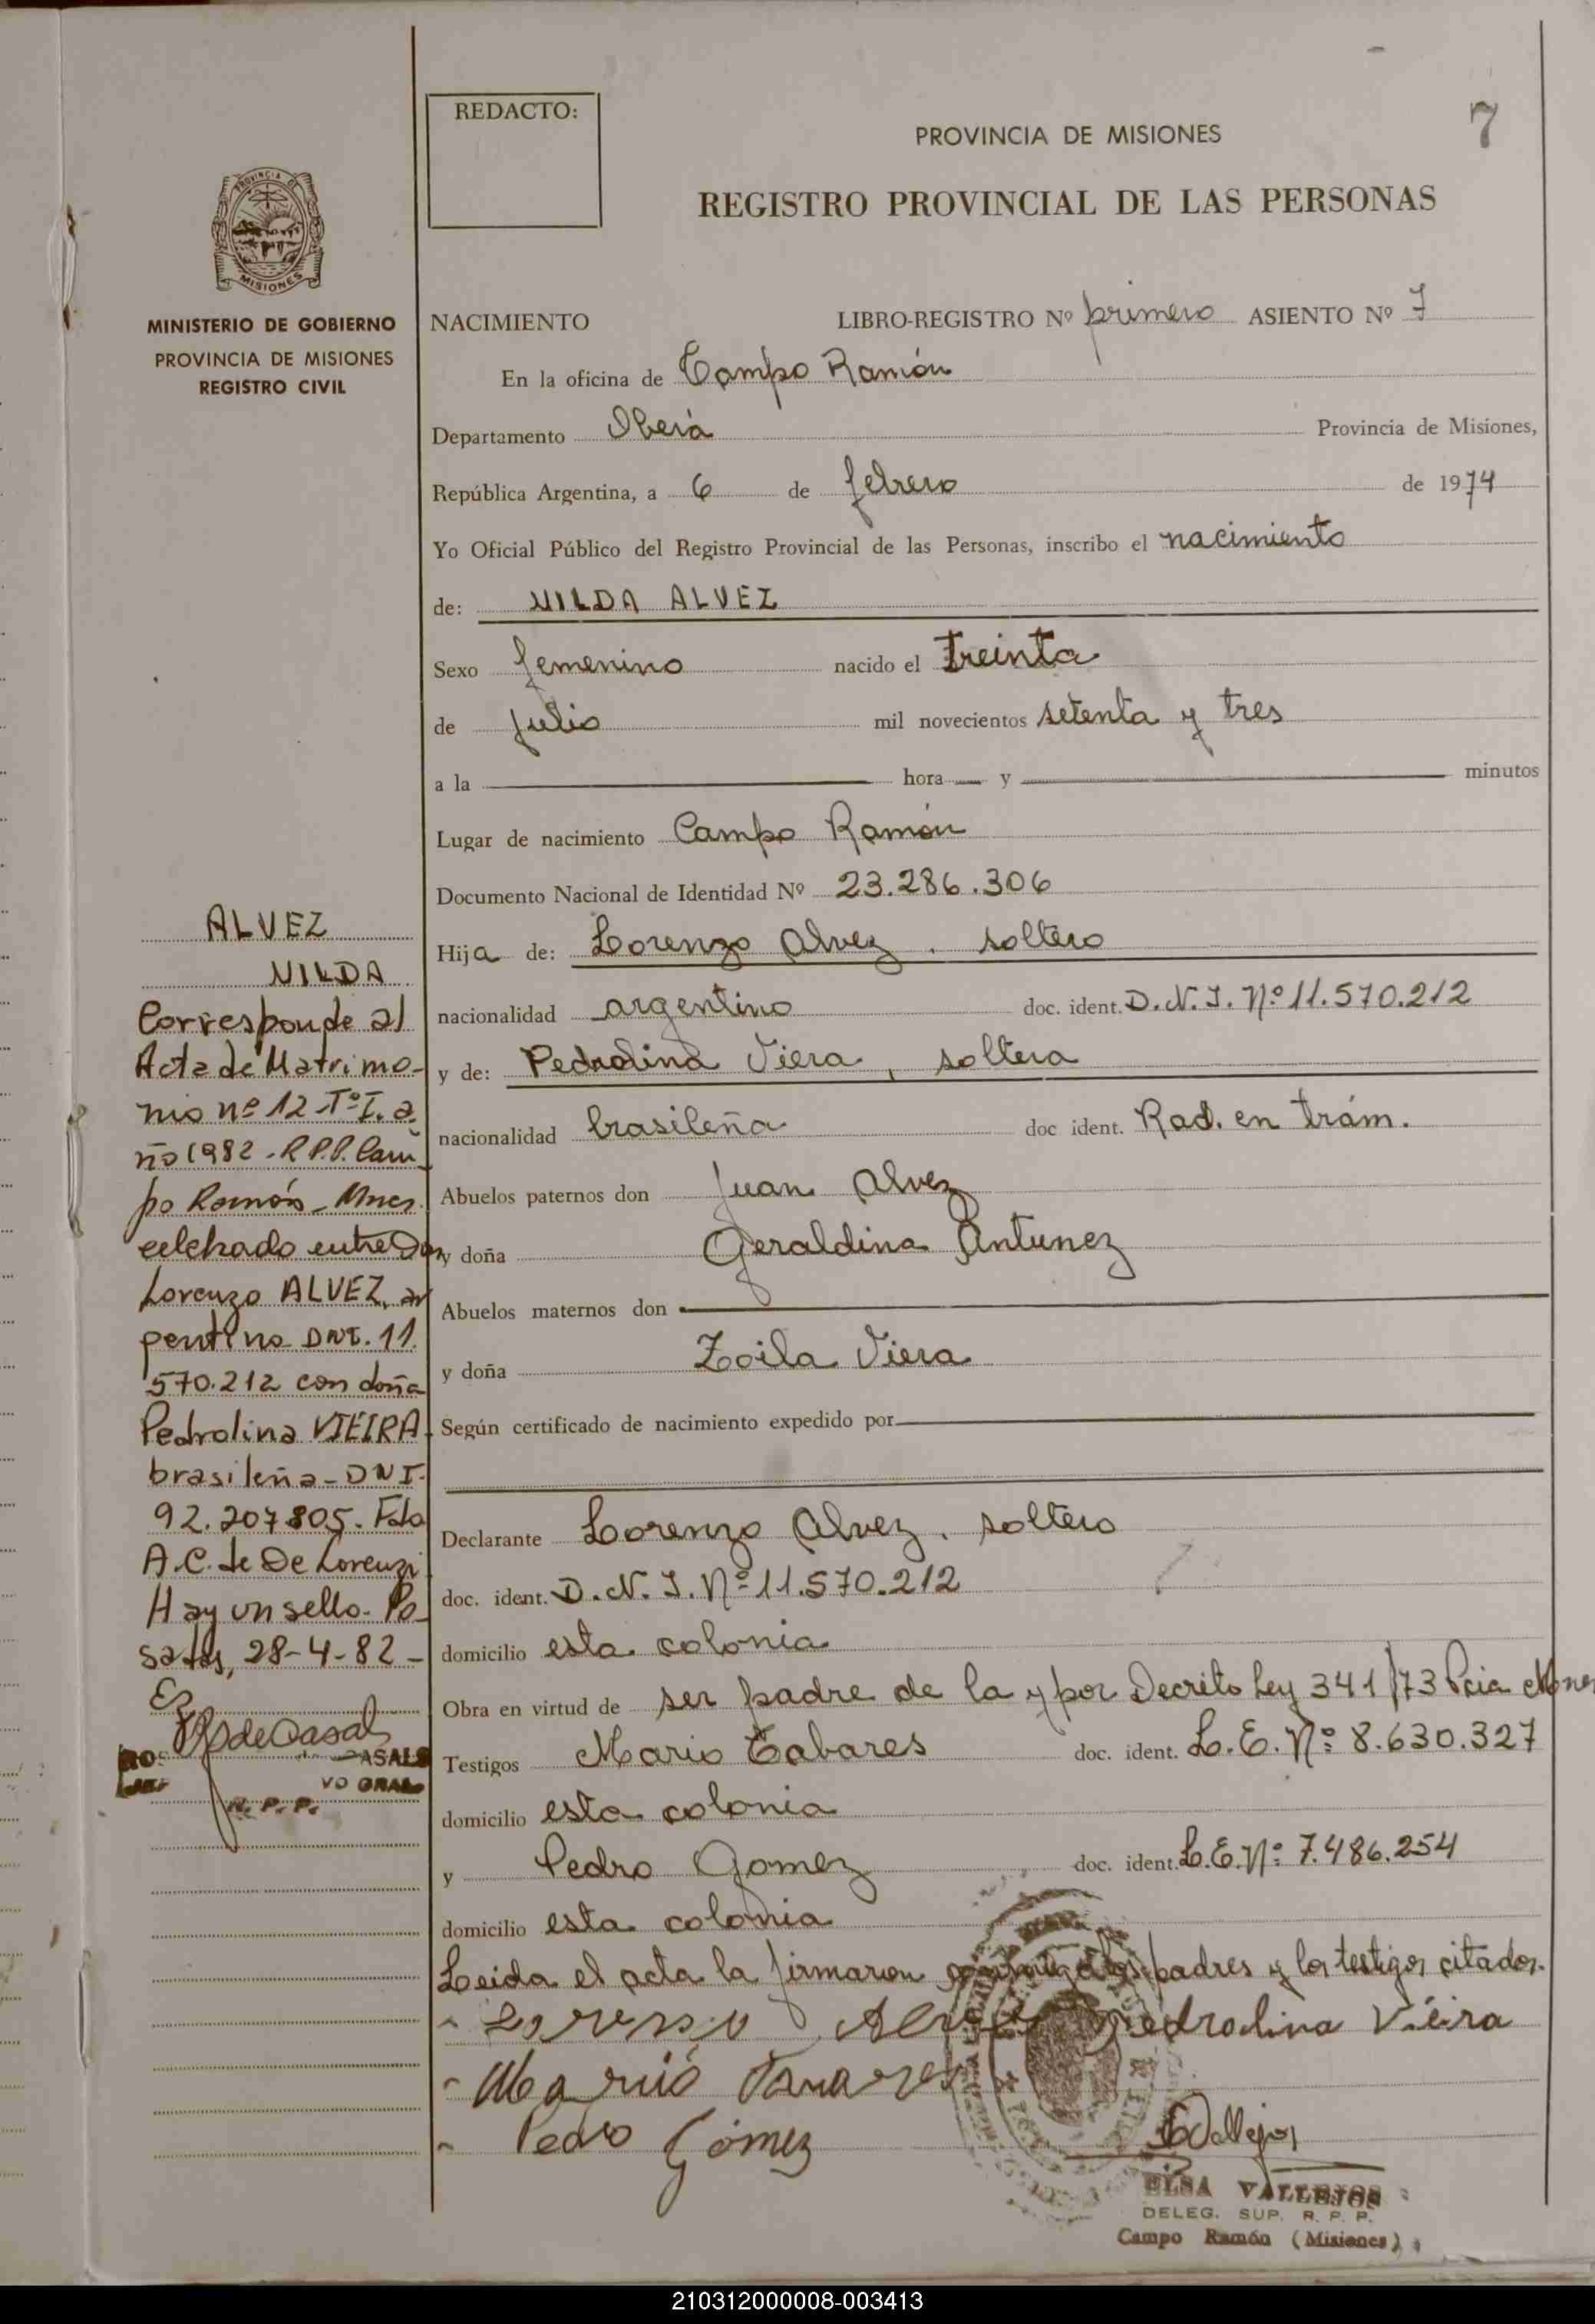 REDACTO:
PROVINCIA DE MISIONES
7
REGISTRO PROVINCIAL DE LAS PERSONAS
PROVINCIA DE
MISIONES
MINISTERIO DE GOBIERNO
PROVINCIA DE MISIONES
REGISTRO CIVIL
NACIMIENTO LIBRO-REGISTRO Nº primero ASIENTO Nº 7
En la oficina de Campo Ramón
Departamento Oberá Provincia de Misiones,
República Argentina, a 6 de febrero de 1974
Yo Oficial Público del Registro Provincial de las Personas, inscribo el nacimiento
de: NILDA ALVEZ
Sexo femenino nacido el treinta
de julio mil novecientos setenta y tres
a la hora y minutos
Lugar de nacimiento Campo Ramón
Documento Nacional de Identidad Nº 23.286.306
Hija de: Lorenzo Alvez, soltero
nacionalidad argentino doc. ident. D.N.I. Nº 11.570.212
y de: Pedrolina Viera, soltera
nacionalidad brasileña doc ident. Rad. en trám.
Abuelos paternos don Juan Alvez
y doña Geraldina Antunez
Abuelos maternos don
y doña Zoila Viera
Según certificado de nacimiento expedido por
Declarante Lorenzo Alvez, soltero
doc. ident. D.N.I. Nº 11.570.212
domicilio esta colonia
Obra en virtud de ser padre de la y por Decreto Ley 341/73 Pcia Mnes
Testigos Mario Tabares doc. ident. L.E. Nº 8.630.327
domicilio esta colonia
y Pedro Gomez doc. ident. L.E. Nº 7.486.254
domicilio esta colonia
Leida el acta la firmaron padres y los testigos citados.
Pedrolina Vieira
Pedro Gómez
EVallejos
ELSA VALLEJOS
DELEG. SUP. R. P. P.
Campo Ramón (Misiones)
ALVEZ
NILDA
Corresponde al
Acta de Matrimo-
nio nº 12 Tº I. a
ño 1982 - R.P.P. Cam
po Ramón - Mnes.
celebrado entre Don
Lorenzo ALVEZ, ar
gentino DNI. 11.
570.212 con doña
Pedrolina VIEIRA
brasileña - DNI.
92.207805. Fdo
A.C. de De Lorenzi
Hay un sello. Po
sadas, 28-4-82 -
R. P. P.
210312000008-003413